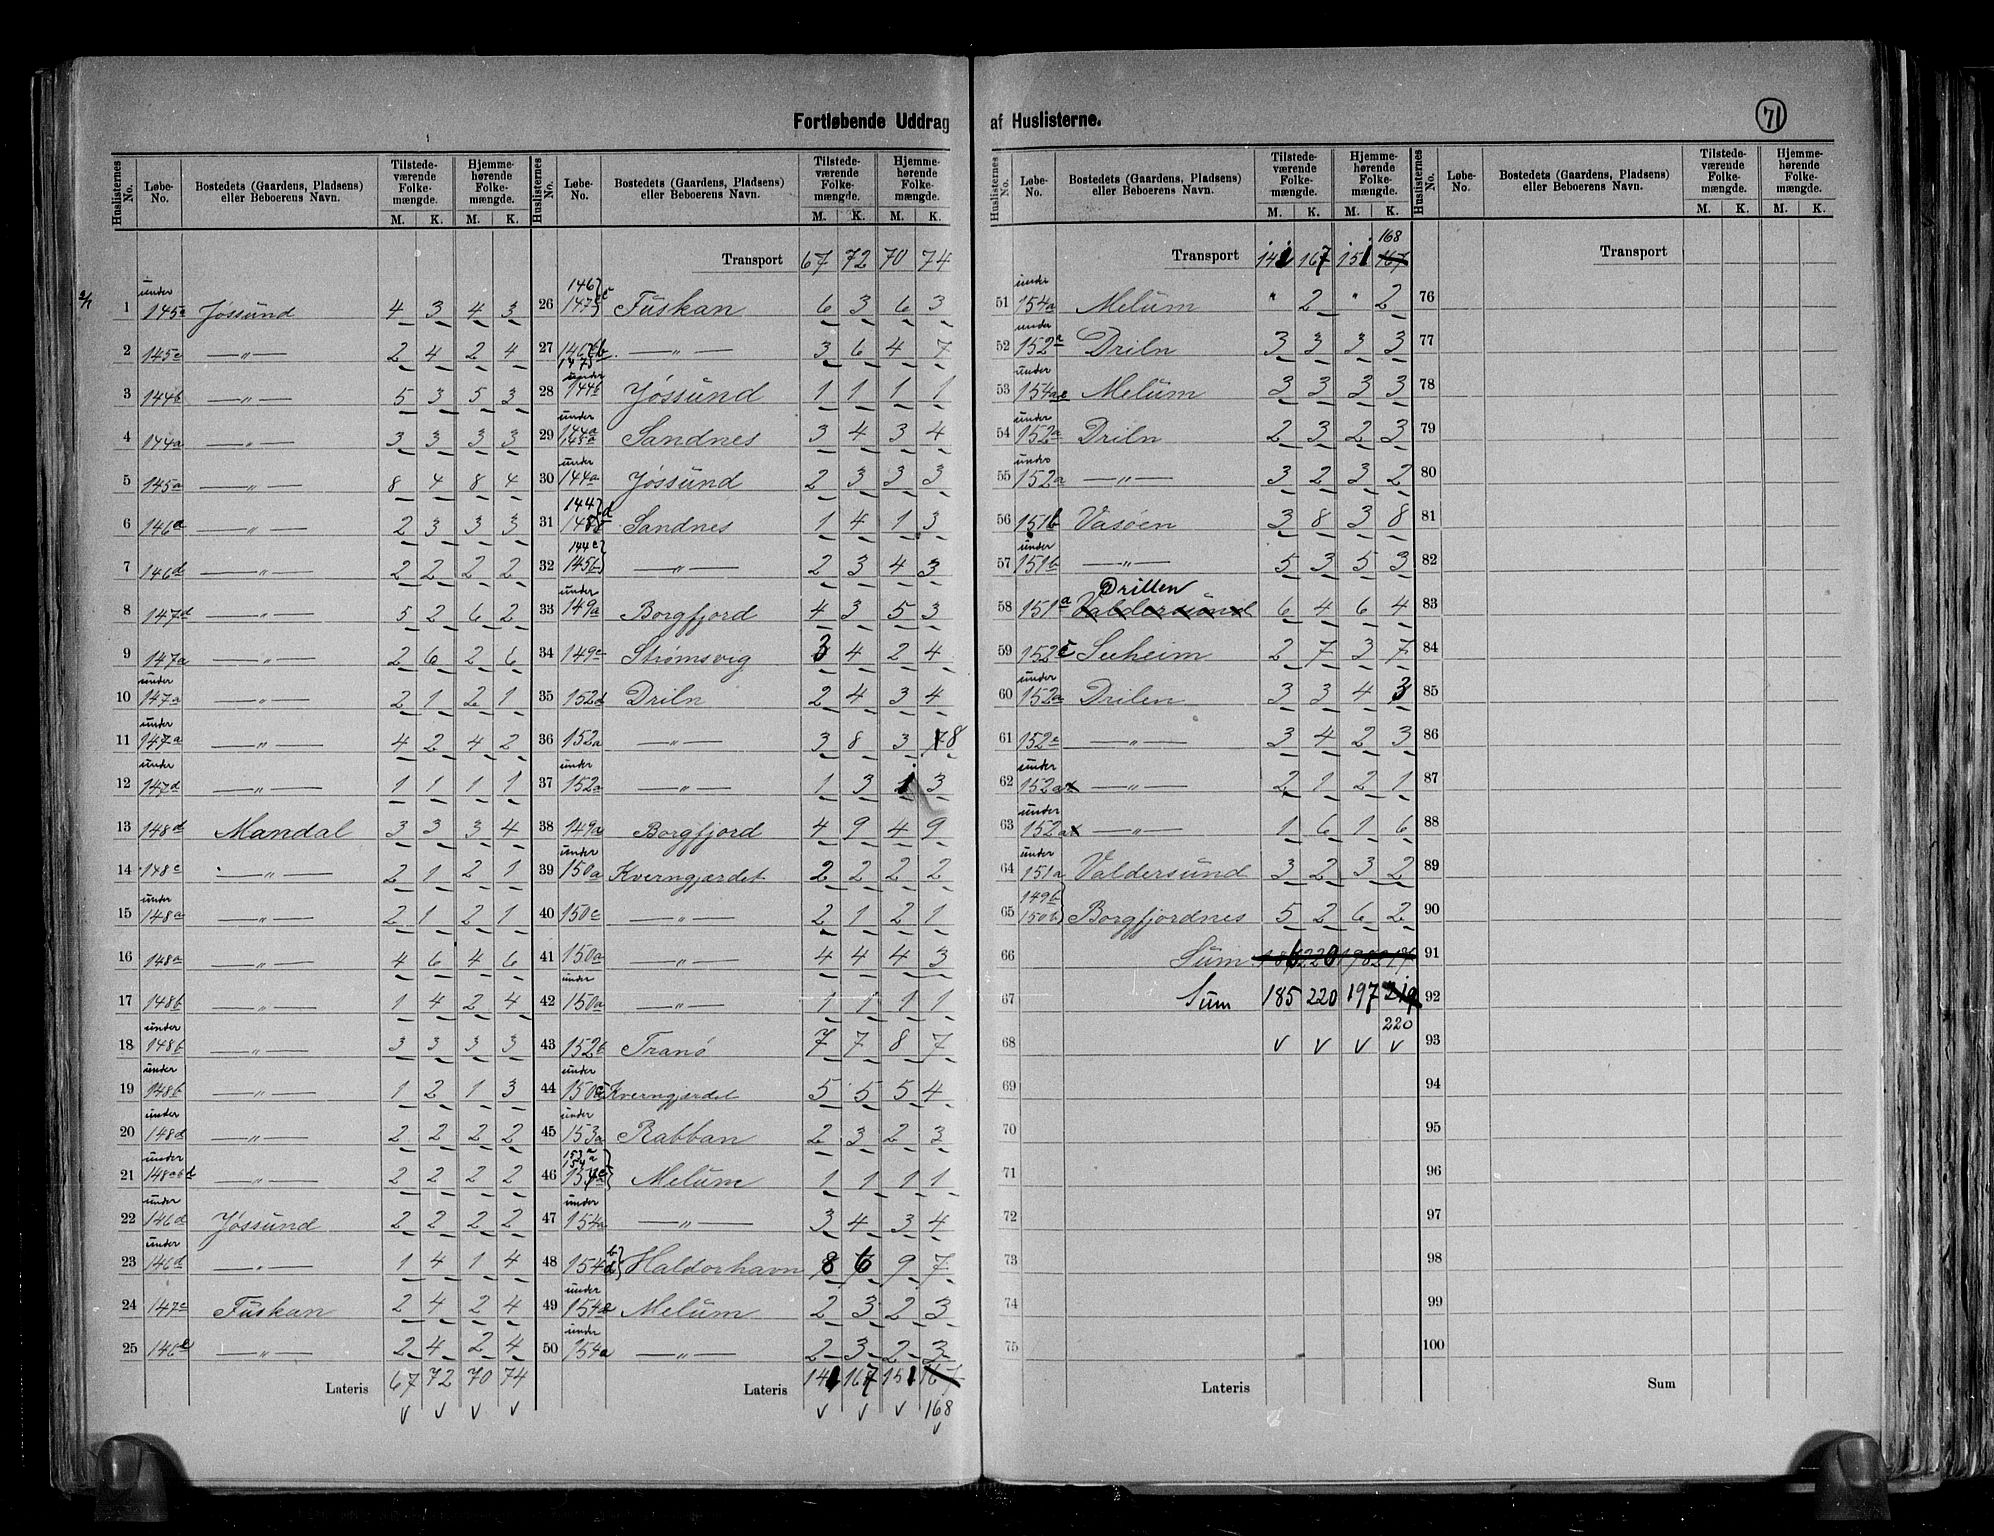 71
Fortløbende Uddrag af Huslisterne.
Huslisternes No. | Løbe-No. | Bostedets (Gaardens, Pladsens) eller Beboerens Navn. | Tilstedeværende Folkemængde. M. K. | Hjemmehørende Folkemængde. M. K.
1 under 145a Jøssund 4 3 4 3
2 145c —„— 2 4 2 4
3 144b —„— 5 3 5 3
4 144a —„— 3 3 3 3
5 145a —„— 8 4 8 4
6 146a —„— 2 3 3 3
7 146d —„— 2 2 2 2
8 147d —„— 5 2 6 2
9 147a —„— 2 6 2 6
10 under 147a —„— 2 1 2 1
11 under 147a —„— 4 2 4 2
12 under 147d —„— 1 1 1 1
13 148d Mandal 3 3 3 4
14 148c —„— 2 1 2 1
15 under 148a —„— 2 1 2 1
16 148a —„— 4 6 4 6
17 148b —„— 1 4 2 4
18 under 148b —„— 3 3 3 3
19 under 148b —„— 1 2 1 3
20 under 148d —„— 2 2 2 2
21 under —„— 2 2 2 2
22 under 146d Jøssund 2 2 2 2
23 under 146d —„— 1 4 1 4
24 147c Fuskan 2 4 2 4
25 146c —„— 2 4 2 4
Lateris 67 72 70 74
v v v v
Huslisternes No. | Løbe-No. | Bostedets (Gaardens, Pladsens) eller Beboerens Navn. | Tilstedeværende Folkemængde. M. K. | Hjemmehørende Folkemængde. M. K.
Transport 67 72 70 74
26 Fuskan 6 3 6 3
27 —„— 3 6 4 7
28 under 144b Jøssund 1 1 1 1
29 under 144a 145a Sandnes 3 4 3 4
30 under 144a Jøssund 2 3 3 3
31 Sandnes 1 4 1 3
32 144c 145b —„— 2 3 4 3
33 under 149a Borgfjord 4 3 5 3
34 149c Strømsvig 3 4 2 4
35 152d Driln 2 4 3 4
36 152a —„— 3 8 3 8
37 under 152a —„— 1 3 1 3
38 149a Borgfjord 4 9 4 9
39 under 150a Kverngjærdet 2 2 2 2
40 150c —„— 2 1 2 1
41 150a —„— 4 4 4 3
42 under 150a —„— 1 1 1 1
43 152b Tranø 7 7 8 7
44 under 150c Kverngjerdet 5 5 5 4
45 under 153a Rabban 2 3 2 3
46 Melum 1 1 1 1
47 under 154a —„— 3 4 3 4
48 154 b d Haldorhavn 8 6 9 7
49 under 154a Melum 2 3 2 3
50 under 154a —„— 2 3 2 3
Lateris 141 167 151 167
168
v v v v
Huslisternes No. | Løbe-No. | Bostedets (Gaardens, Pladsens) eller Beboerens Navn. | Tilstedeværende Folkemængde. M. K. | Hjemmehørende Folkemængde. M. K.
168
Transport 141 167 151 167
51 under 154a Melum " 2 " 2
52 under 152a Driln 3 3 3 3
53 under 154a Melum 3 3 3 3
54 under 152a Driln 2 3 2 3
55 under 152a —„— 3 2 3 2
56 151b Vasøen 3 8 3 8
57 under 151b —„— 5 3 5 3
Drillen
58 151a Valdersund 6 4 6 4
59 152c Seeheim 2 7 3 7
60 under 152a Drilen 3 3 4 3
61 152e —„— 3 4 2 3
62 under 152a —„— 2 1 2 1
63 under 152a —„— 1 6 1 6
64 under 151a Valdersund 3 2 3 2
65 149b 150b Borgfjordnes 5 2 6 2
66 Sum 186 220 198 217
67 Sum 185 220 197 219
220
68 v v v v
69
70
71
72
73
74
75
Lateris
Huslisternes No. | Løbe-No. | Bostedets (Gaardens, Pladsens) eller Beboerens Navn. | Tilstedeværende Folkemængde. M. K. | Hjemmehørende Folkemængde. M. K.
Transport
76
77
78
79
80
81
82
83
84
85
86
87
88
89
90
91
92
93
94
95
96
97
98
99
100
Sum